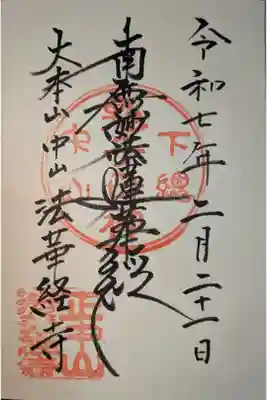 令和七年二月二十一日
南無妙法蓮華経
大本山中山法華経寺
下總
中山